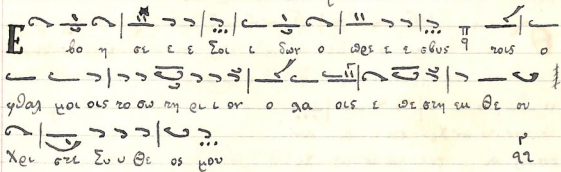 Ε βο η σε ε ε Σοι ι δων ο πρε ε ε σβυς τοις ο
φθαλ μοι οις το σω τη ρι ι ον ο λα οις ε πε στη εκ Θε ου
Χρι στε Συ υ Θε ος μου